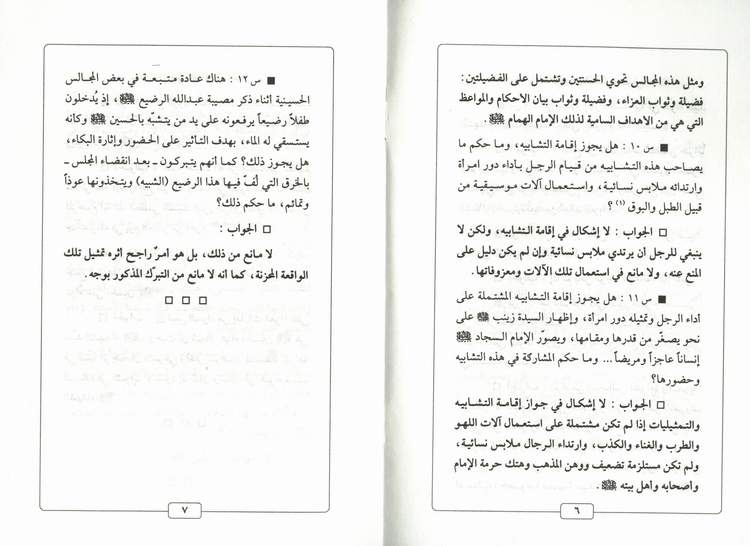 ومثل هذه المجالس تحوي الحسنتين وتشتمل على الفضيلتين :
فضيلة وثواب العزاء، وفضيلة وثواب بيان الأحكام والمواعظ
التي هي من الأهداف السامية لذلك الإمام الهمام ﷺ .
■ س ١٠ : هل يجوز إقامة التشابيه، وما حكم ما
يصاحب هذه التشابيه من قيام الرجل بأداء دور امرأة
وارتدائه ملابس نسائية، واستعمال آلات موسيقية من
قبيل الطبل والبوق (١) ؟
□ الجواب : لا إشكال في إقامة التشابيه، ولكن لا
ينبغي للرجل أن يرتدي ملابس نسائية وإن لم يكن دليل على
المنع عنه، ولا مانع في استعمال تلك الآلات ومعزوفاتها.
■ س ١١ : هل يجوز إقامة التشابيه المشتملة على
أداء الرجل وتمثيله دور امرأة، وإظهار السيدة زينب على
نحو يصغّر من قدرها ومقامها، ويصوّر الإمام السجاد
إنساناً عاجزاً ومريضاً... وما حكم المشاركة في هذه التشابيه
وحضورها؟
□ الجواب : لا إشكال في جواز إقامة التشابيه
والتمثيليات إذا لم تكن مشتملة على استعمال آلات اللهو
والطرب والغناء والكذب، وارتداء الرجال ملابس نسائية،
ولم تكن مستلزمة تضعيف ووهن المذهب وهتك حرمة الإمام
وأصحابه وأهل بيته .
٦
■ س ١٢ : هناك عادة متبعة في بعض المجالس
الحسينية أثناء ذكر مصيبة عبدالله الرضيع ، إذ يُدخلون
طفلاً رضيعاً يرفعونه على يد من يتشبّه بالحسين وكأنه
يستسقي له الماء، بهدف التأثير على الحضور وإثارة البكاء،
هل يجوز ذلك؟ كما أنهم يتبركون ـ بعد انقضاء المجلس ـ
بالخرق التي لُفّ فيها هذا الرضيع (الشبيه) ويتخذونها عوذاً
وتمائم، ما حكم ذلك؟
□ الجواب :
لا مانع من ذلك، بل هو أمرٌ راجح أثره تمثيل تلك
الواقعة المحزنة، كما أنه لا مانع من التبرّك المذكور بوجه.
□ □ □
٧